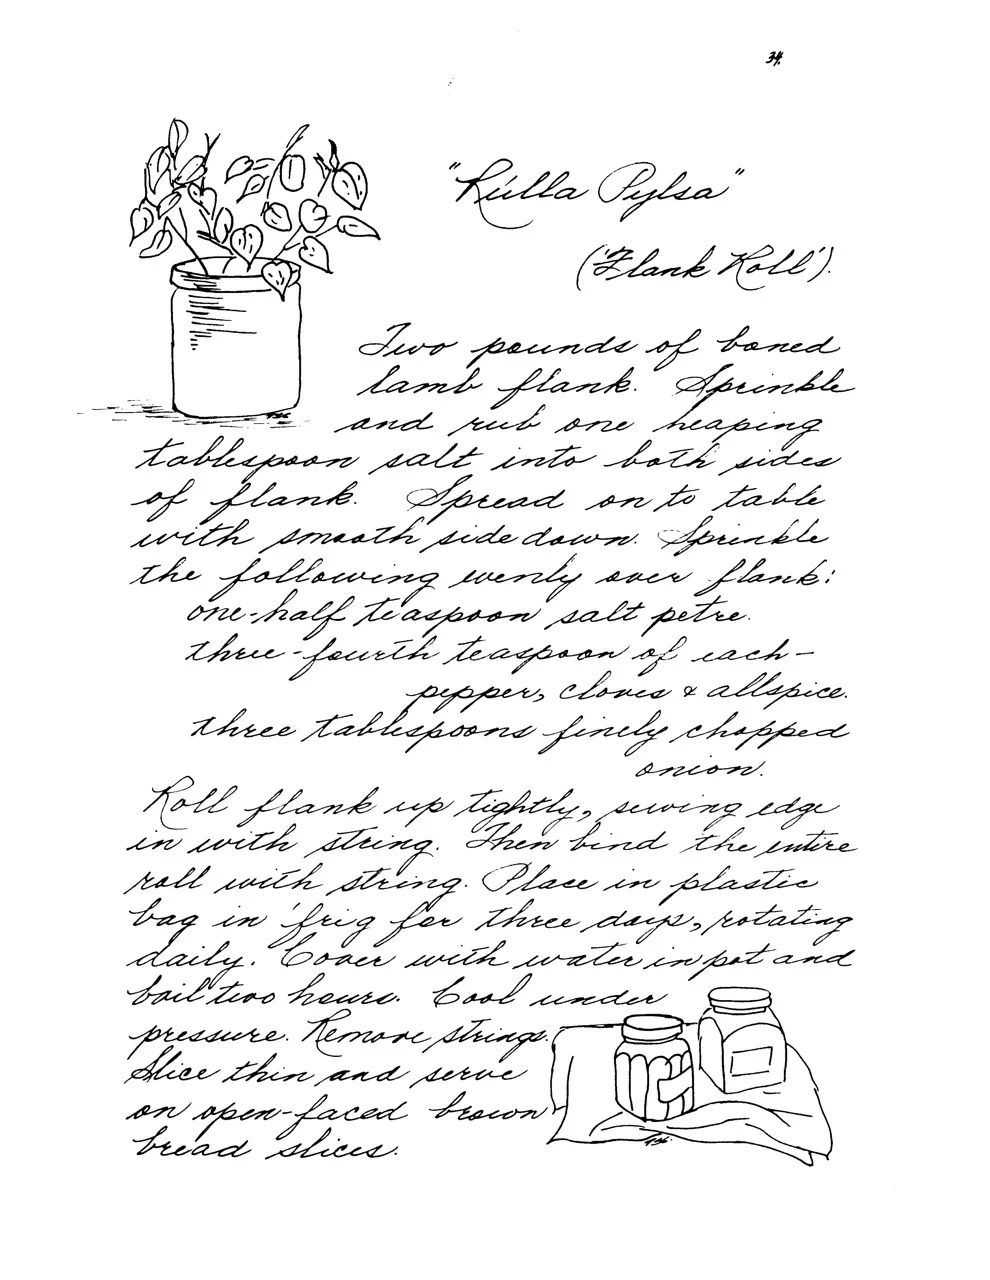 34.
"Rúlla Pylsa"
('Flank Roll').
Two pounds of boned
lamb flank. Sprinkle
and rub one heaping
tablespoon salt into both sides
of flank. Spread on to table
with smooth side down. Sprinkle
the following evenly over flank:
one-half teaspoon salt petre.
three-fourth teaspoon of each-
pepper, cloves & allspice.
three tablespoons finely chopped
onion.
Roll flank up tightly, sewing edge
in with string. Then bind the entire
roll with string. Place in plastic
bag in 'frig for three days, rotating
daily. Cover with water in pot and
boil two hours. Cool under
pressure. Remove strings.
Slice thin and serve
on open-faced brown
bread slices.